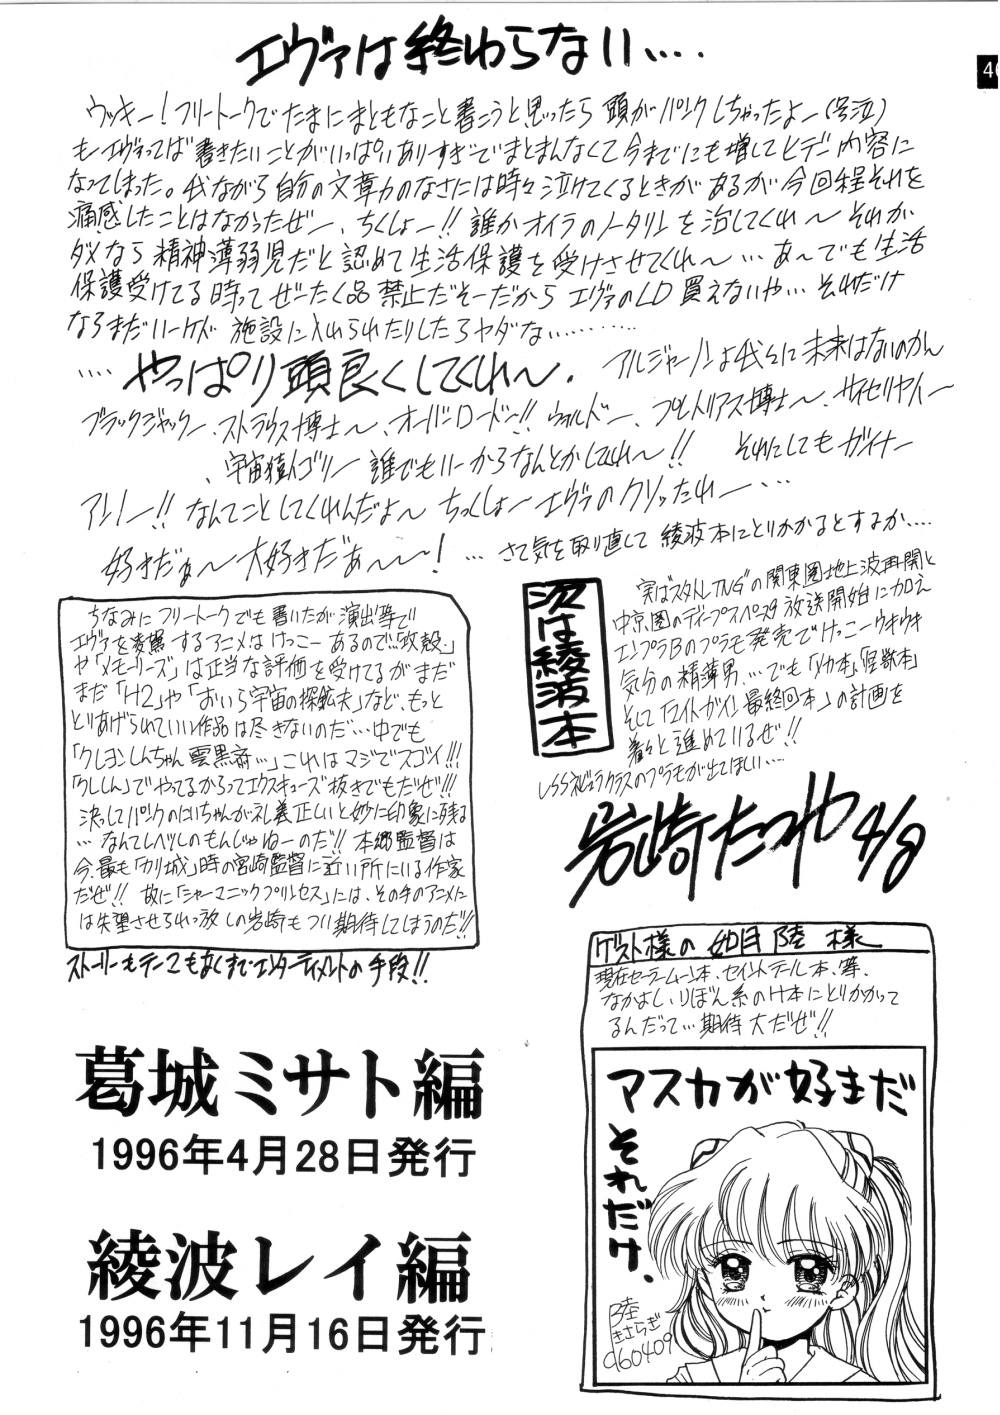 46
エヴァは終わらない….
ウッキー!フリートークでたまにまともなこと書こうと思ったら 頭がパンクしちゃったよー(号泣)
もーエヴァってば書きたいことがいっぱいありすぎでまとまんなくて今までにも増してヒデー内容に
なってしまった。我ながら自分の文章力のなさには時々泣けてくるときがあるが今回程それを
痛感したことはなかったぜー、ちくしょー!!誰かオイラのノータリンを治してくれ〜それが
ダメなら精神薄弱児だと認めて生活保護を受けさせてくれ〜…あ〜でも生活
保護受けてる時ってぜーたく品禁止だそーだからエヴァのLD買えないや…それだけ
ならまだいーけど 施設に入れられたりしたらヤダな…………
…. やっぱり頭良くしてくれ〜. アルジャーノンよ我々に未来はないのかん
ブラックジャックー、ストラウス博士〜、オーバーロードー!!ウォルドー、
、宇宙猿人ゴリー 誰でもいーからなんとかしてくれ〜!! それにしてもガイナー
アンノー!!なんてことしてくれんだよ〜ちっくしょーエヴァのクソったれー…
好きだぁ〜大好きだぁ〜〜! …さて気を取り直して 綾波本にとりかかるとするか….
次は綾波本
実はスタトレTNGの関東圏地上波再開と
中京圏のディープスペース9放送開始に加え
エンプラBのプラモ発売でけっこーウキウキ
気分の精薄男…でも「メカ本」「怪獣本」
そして「マイトガイン最終回本」の計画を
着々と進めているぜ!!
岩崎たつや 4/8
ちなみにフリートークでも書いたが演出等で
エヴァを凌駕するアニメはけっこーあるので「攻殻.」
や「メモリーズ」は正当な評価を受けてるがまだ
まだ「H2」や「おいら宇宙の探鉱夫」など、もっと
とりあげられていい作品は尽きないのだ…中でも
「クレヨンしんちゃん 雲黒斎…」これはマジでスゴイ!!!
「クレしん」でやってるからってエクスキューズ抜きでもだぜ!!!
…なんてレベルのもんじゃねーのだ!! 本郷監督は
今、最も「カリ城」時の宮崎監督に近い所にいる作家
だぜ!! 故に「シャーマニックプリンセス」には、その手のアニメに
は失望させられっ放しの岩崎もつい期待してしまうのだ!!
ストーリーもテーマもあくまでエンターティメントの手段!!
ゲスト様の 如月 陸 様
現在セーラームーン本、セイントテール本、等、
なかよし、りぼん系のH本にとりかかって
るんだって…期待大だぜ!!
マスカが好きだ
それだけ.
陸
きさらぎ
960409
葛城ミサト編
1996年4月28日発行
綾波レイ編
1996年11月16日発行